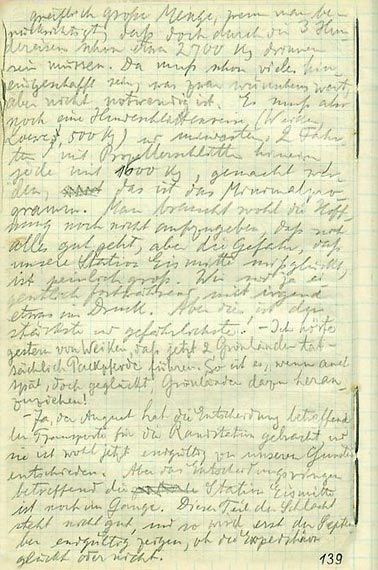 greiflich große Menge, wenn man be-
rücksichtigt, daß doch durch die 3 Hun-
dereisen schon etwa 2700 kg drinnen
sein müssen. Da muß schon vieles hin-
eingeschafft sein, was zwar wünschenswert,
aber nicht notwendig ist. Es muß also
noch eine Hundeschlittenreise (Weiken,
Loewe, 500 kg) und mindestens 2 Fahr-
ten mit Propellerschlitten hinein
jede mit 1000 kg, gemacht wer-
den, das ist das Minimalpro-
gramm. Man braucht wohl die Hoff-
nung noch nicht aufzugeben, daß noch
alles gut geht, aber die Gefahr, daß
unsere Station Eismitte mißglückt,
ist peinlich groß. Wir sind ja
fortwährend mit irgend
etwas im Druck. Aber dies ist das
stärkste und gefährlichste. – Ich hörte
gestern von Weiken, daß jetzt 2 Grönländer tat-
sächlich Packpferde führen. So ist es, wenn auch
spät, doch geglückt Grönländer dazu heran-
zuziehen!
– Ja, der August hat die Entscheidung betreffend
der Transporte für die Randstation gebracht, und
sie ist wohl jetzt endgültig zu unseren Gunsten
entschieden. Aber das Entscheidungsringen
betreffend die Station Eismitte
ist noch im Gange. Dieser Teil der Schlacht
steht nicht gut, und so wird erst der Septem-
ber endgültig zeigen, ob die Expedition
glückt oder nicht.
139